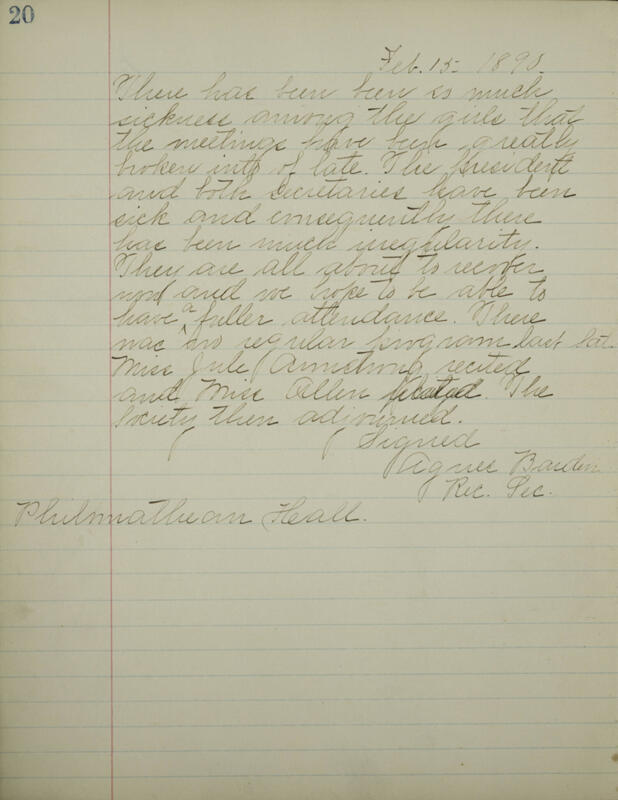 20
Feb. 15 1890
There has been been so much
sickness among the girls that
the meetings have been greatly
broken into of late. The president
and both secretaries have been
sick and consequently there
has been much irregularity.
They are all about to recover
now and we hope to be able to
have a fuller attendance. There
was no regular program last Sat.
Miss Jule Armstrong recited
and Miss Allen The
Society then adjourned.
Signed
Agnes Barden
Rec. Sec.
Philomathean Hall.